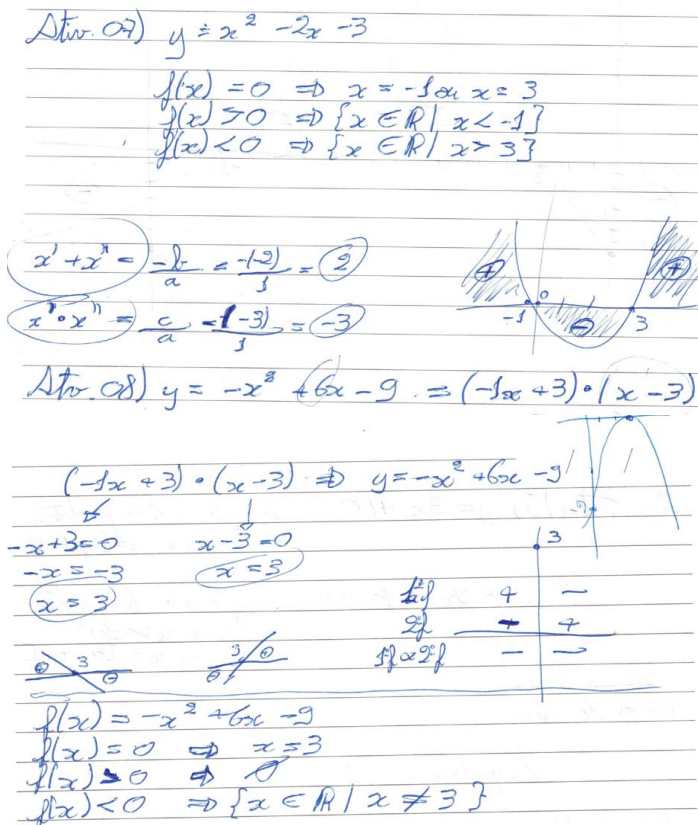 Ativ. 07) y = x² - 2x - 3
f(x) = 0 ⇒ x = -1 ou x = 3
f(x) > 0 ⇒ {x ∈ R | x < -1}
f(x) < 0 ⇒ {x ∈ R | x > 3}
x' + x'' = -b/a = -(-2)/1 = 2
+ + 0 -1 - 3
x' • x'' = c/a = (-3)/1 = -3
Ativ. 08) y = -x² + 6x - 9 = (-1x + 3) • (x - 3)
(-1x + 3) • (x - 3) ⇒ y = -x² + 6x - 9
-9
-x + 3 = 0 x - 3 = 0
-x = -3 x = 3
x = 3
3
1ªf + -
2ªf - +
1ªf • 2ªf - -
+ 3 - 3 + -
f(x) = -x² + 6x - 9
f(x) = 0 ⇒ x = 3
f(x) > 0 ⇒ ∅
f(x) < 0 ⇒ {x ∈ R | x ≠ 3}